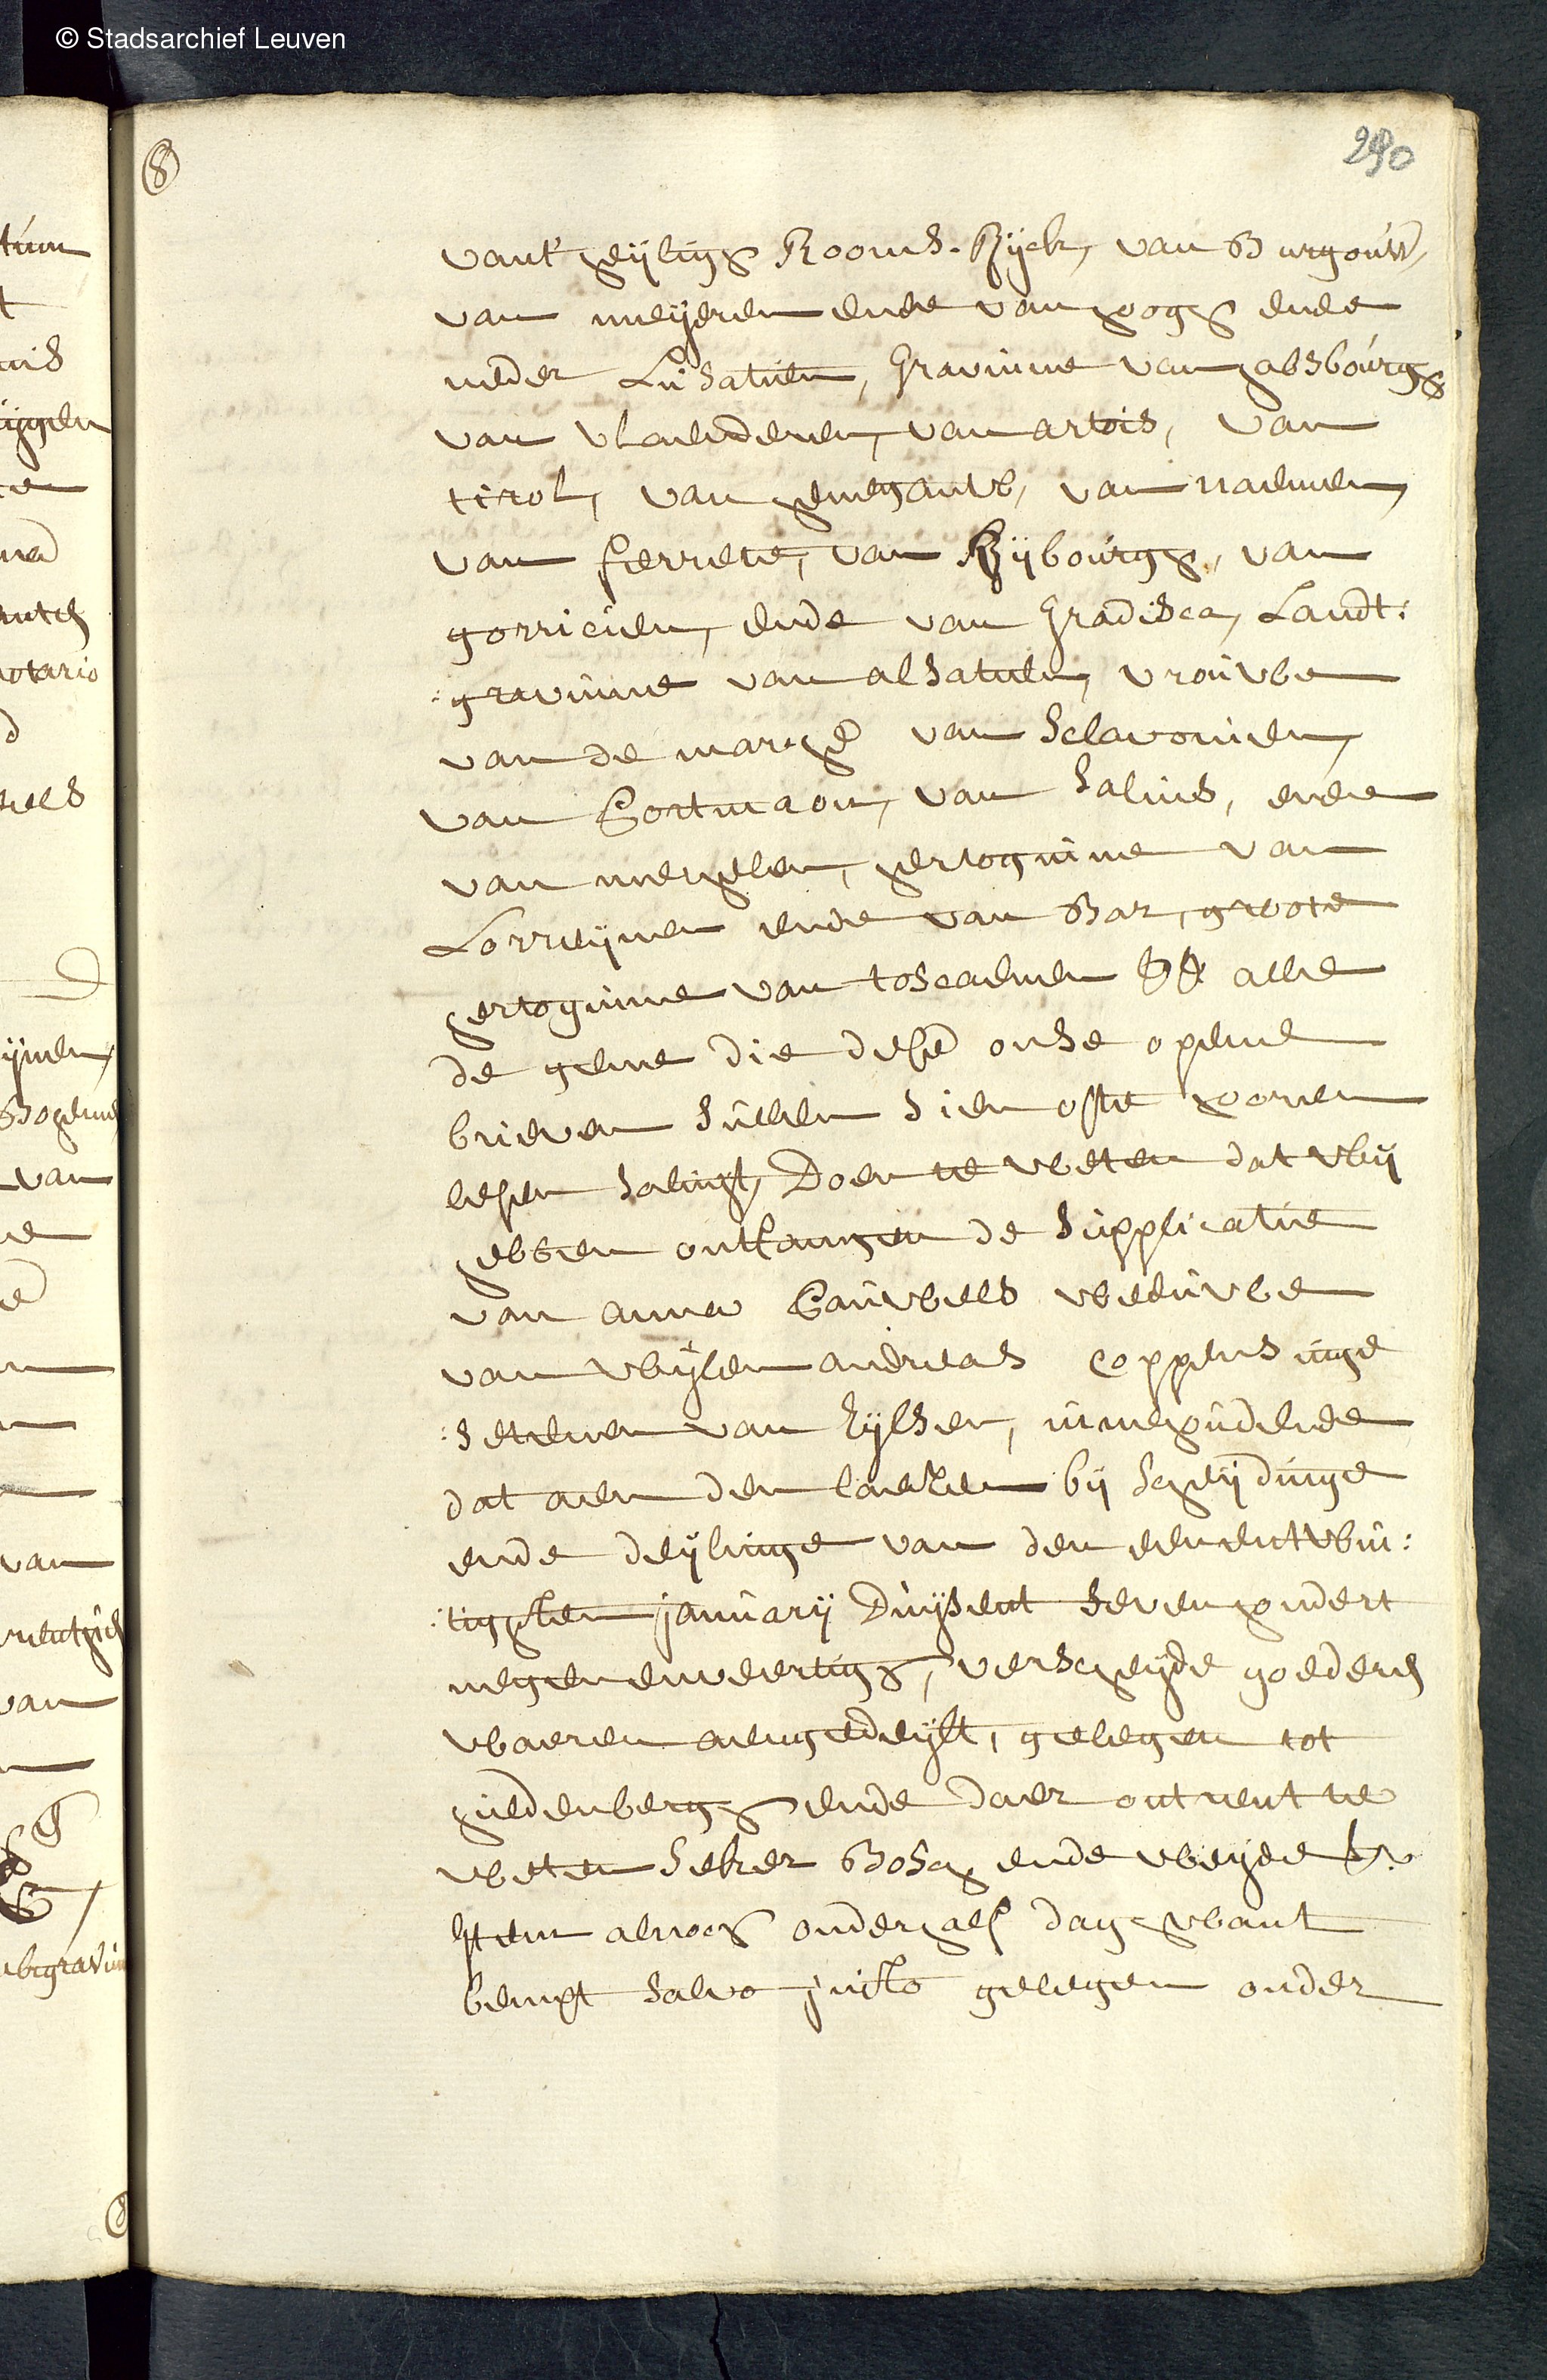 © Stadsarchief Leuven
8
290
vant' heijligh Rooms-Rijck, van Burgouw,
van meijeren ende van hoogh ende
neder Lusatien, Gravinne van habsbourgh
van vlaenderen, van artois, van
tirol, van henegauw, van naemen,
van ferrete, van Kijbourgh, van
gorricien, ende van Gradisca, Landt:
:gravinne van alsatien, vrouwe
van de marche van Sclavonien,
van Portnaon, van Salins, ende
van mechelen, hertoginne van
Lorreijnen ende van Bar, groote
hertoginne van toscaenen &a alle
de gene die dese onse opene
brieven sullen sien ofte hooren
lesen saluijt, Doen te weten dat wij
hebben ontfangen de supplicatie
van anna Pauwels weduwe
van wijlen andreas Coppens inge
:setenen van hijlsen, inne houdende
dat aen den laeten bij scheijdinge
ende deijlinge van den eenentwin:
:tighsten januarij Duijsent sevenhondert
negenenveertigh, verscheijde goederen
waeren aengedeijlt, gelegen tot
huldenbergh ende daer ontrent te
weten seker Bosch ende weijde
Item alnoch onderhalf dagh want
bempt salvo justo gelegen onder